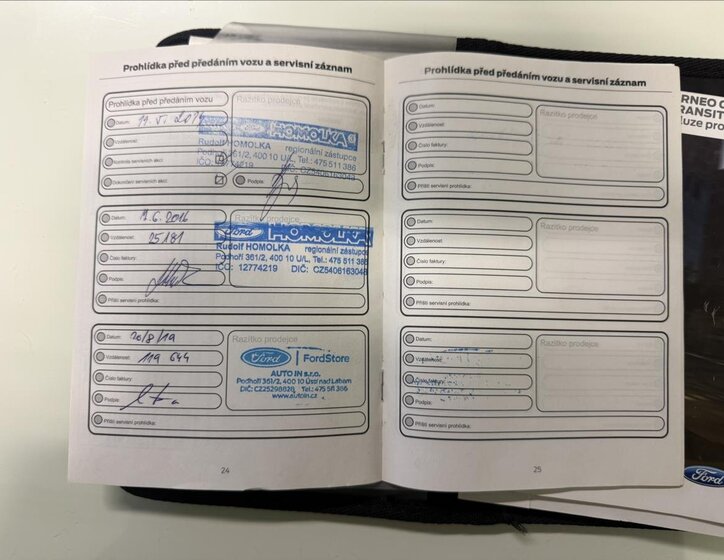 Prohlídka před předáním vozu a servisní záznam
Prohlídka před předáním vozu
Razítko prodejce
Datum:
Vzdálenost:
Kontrola servisních akcí:
Dokončení servisních akcí:
Podpis:
Ford HOMOLKA
Rudolf HOMOLKA regionální zástupce
Podhoří 361/2, 400 10 U/L, Tel.: 475 511 386
Datum: 7.6.2016
Vzdálenost: 25181
Číslo faktury:
Podpis:
Příští servisní prohlídka:
Razítko prodejce
Ford HOMOLKA
Rudolf HOMOLKA regionální zástupce
Podhoří 361/2, 400 10 U/L, Tel.: 475 511
IČO: 12774219 DIČ: CZ5406163048
Datum: 20/8/19
Vzdálenost: 119 644
Číslo faktury:
Podpis:
Příští servisní prohlídka:
Razítko prodejce
Ford FordStore
AUTO IN s.r.o.
Podhoří 361/2, 400 10 Ústí nad Labem
DIČ: CZ25298828 Tel.: 475 511 386
www.autoin.cz
24
Prohlídka před předáním vozu a servisní záznam
Datum:
Vzdálenost:
Číslo faktury:
Podpis:
Příští servisní prohlídka:
Razítko prodejce
Datum:
Vzdálenost:
Číslo faktury:
Podpis:
Příští servisní prohlídka:
Razítko prodejce
Datum:
Vzdálenost:
Podpis:
Příští servisní prohlídka:
Razítko prodejce
25
Ford